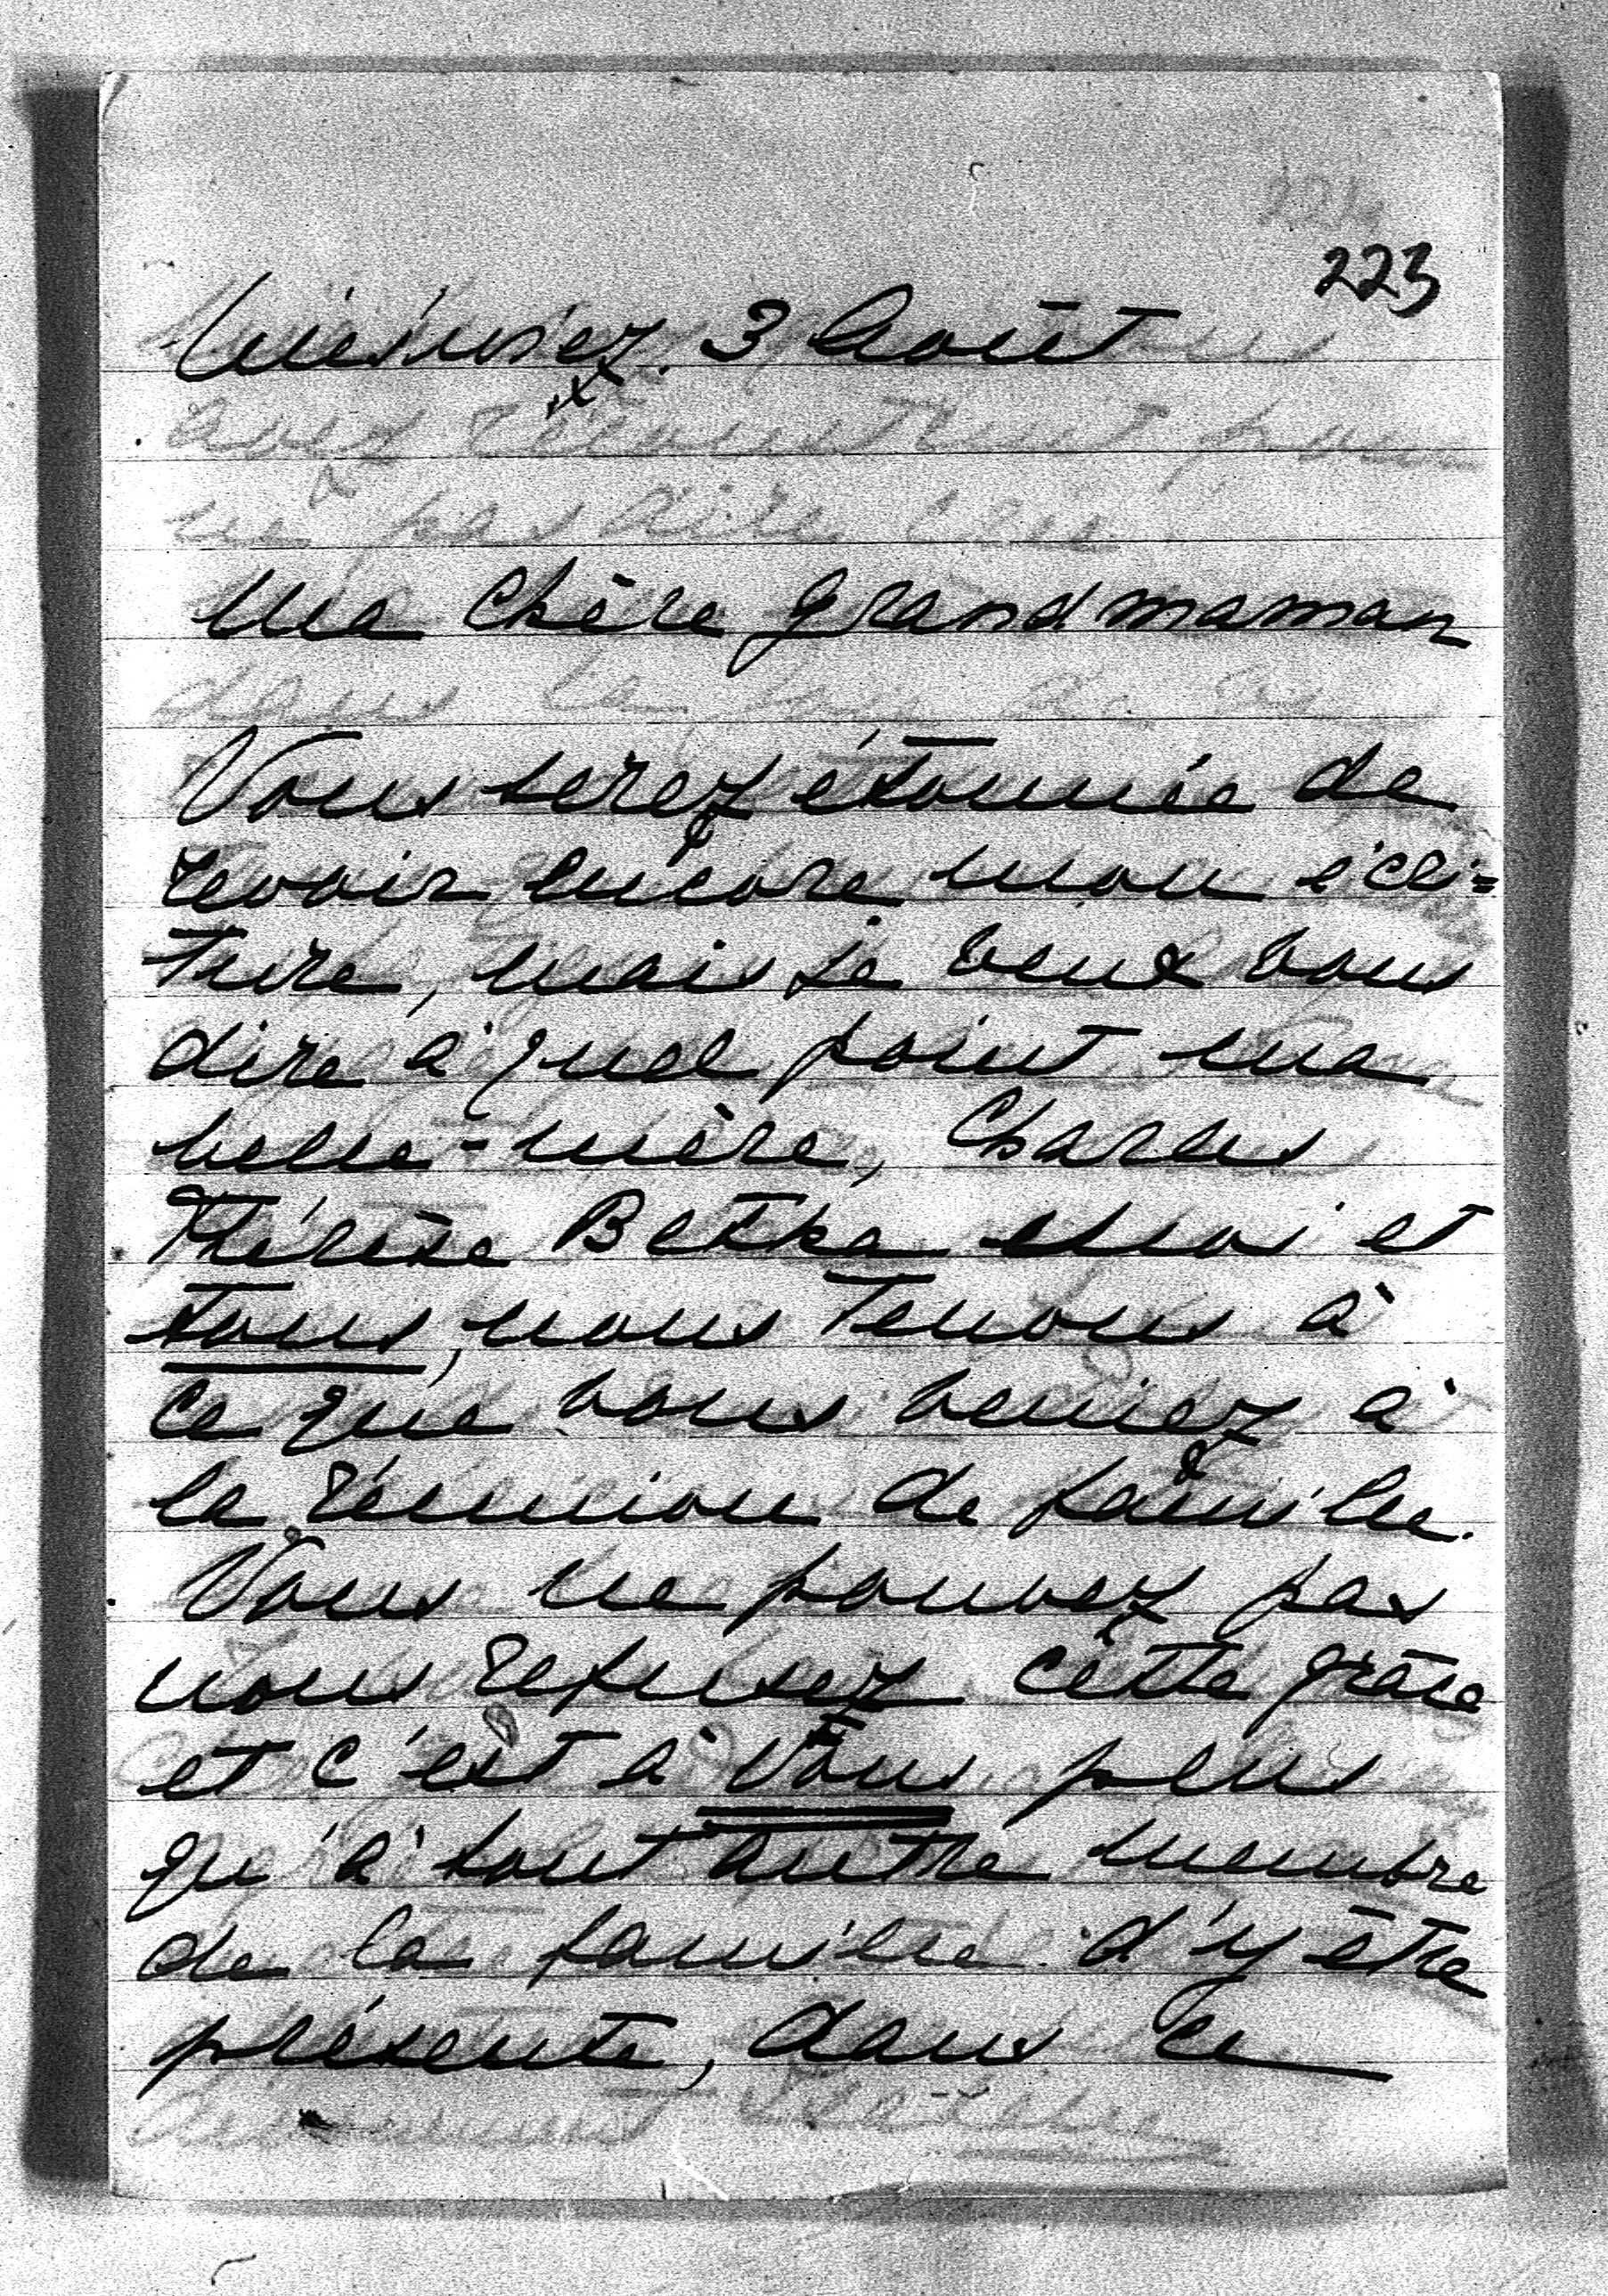 223
3 Août
Ma chère grandmaman
Vous serez étonnée de
revoir encore mon écri=
ture, mais je veux vous
dire à quel point ma
belle-mère, Charles
Thérèse Betka moi et
tous, nous tenons à
ce que vous veniez à
la réunion de famille.
Vous ne pouvez pas
nous refusez cette grâce
et c'est à Vous plus
qu'à tout autre membre
de la famille d'y être
présente, dans ce